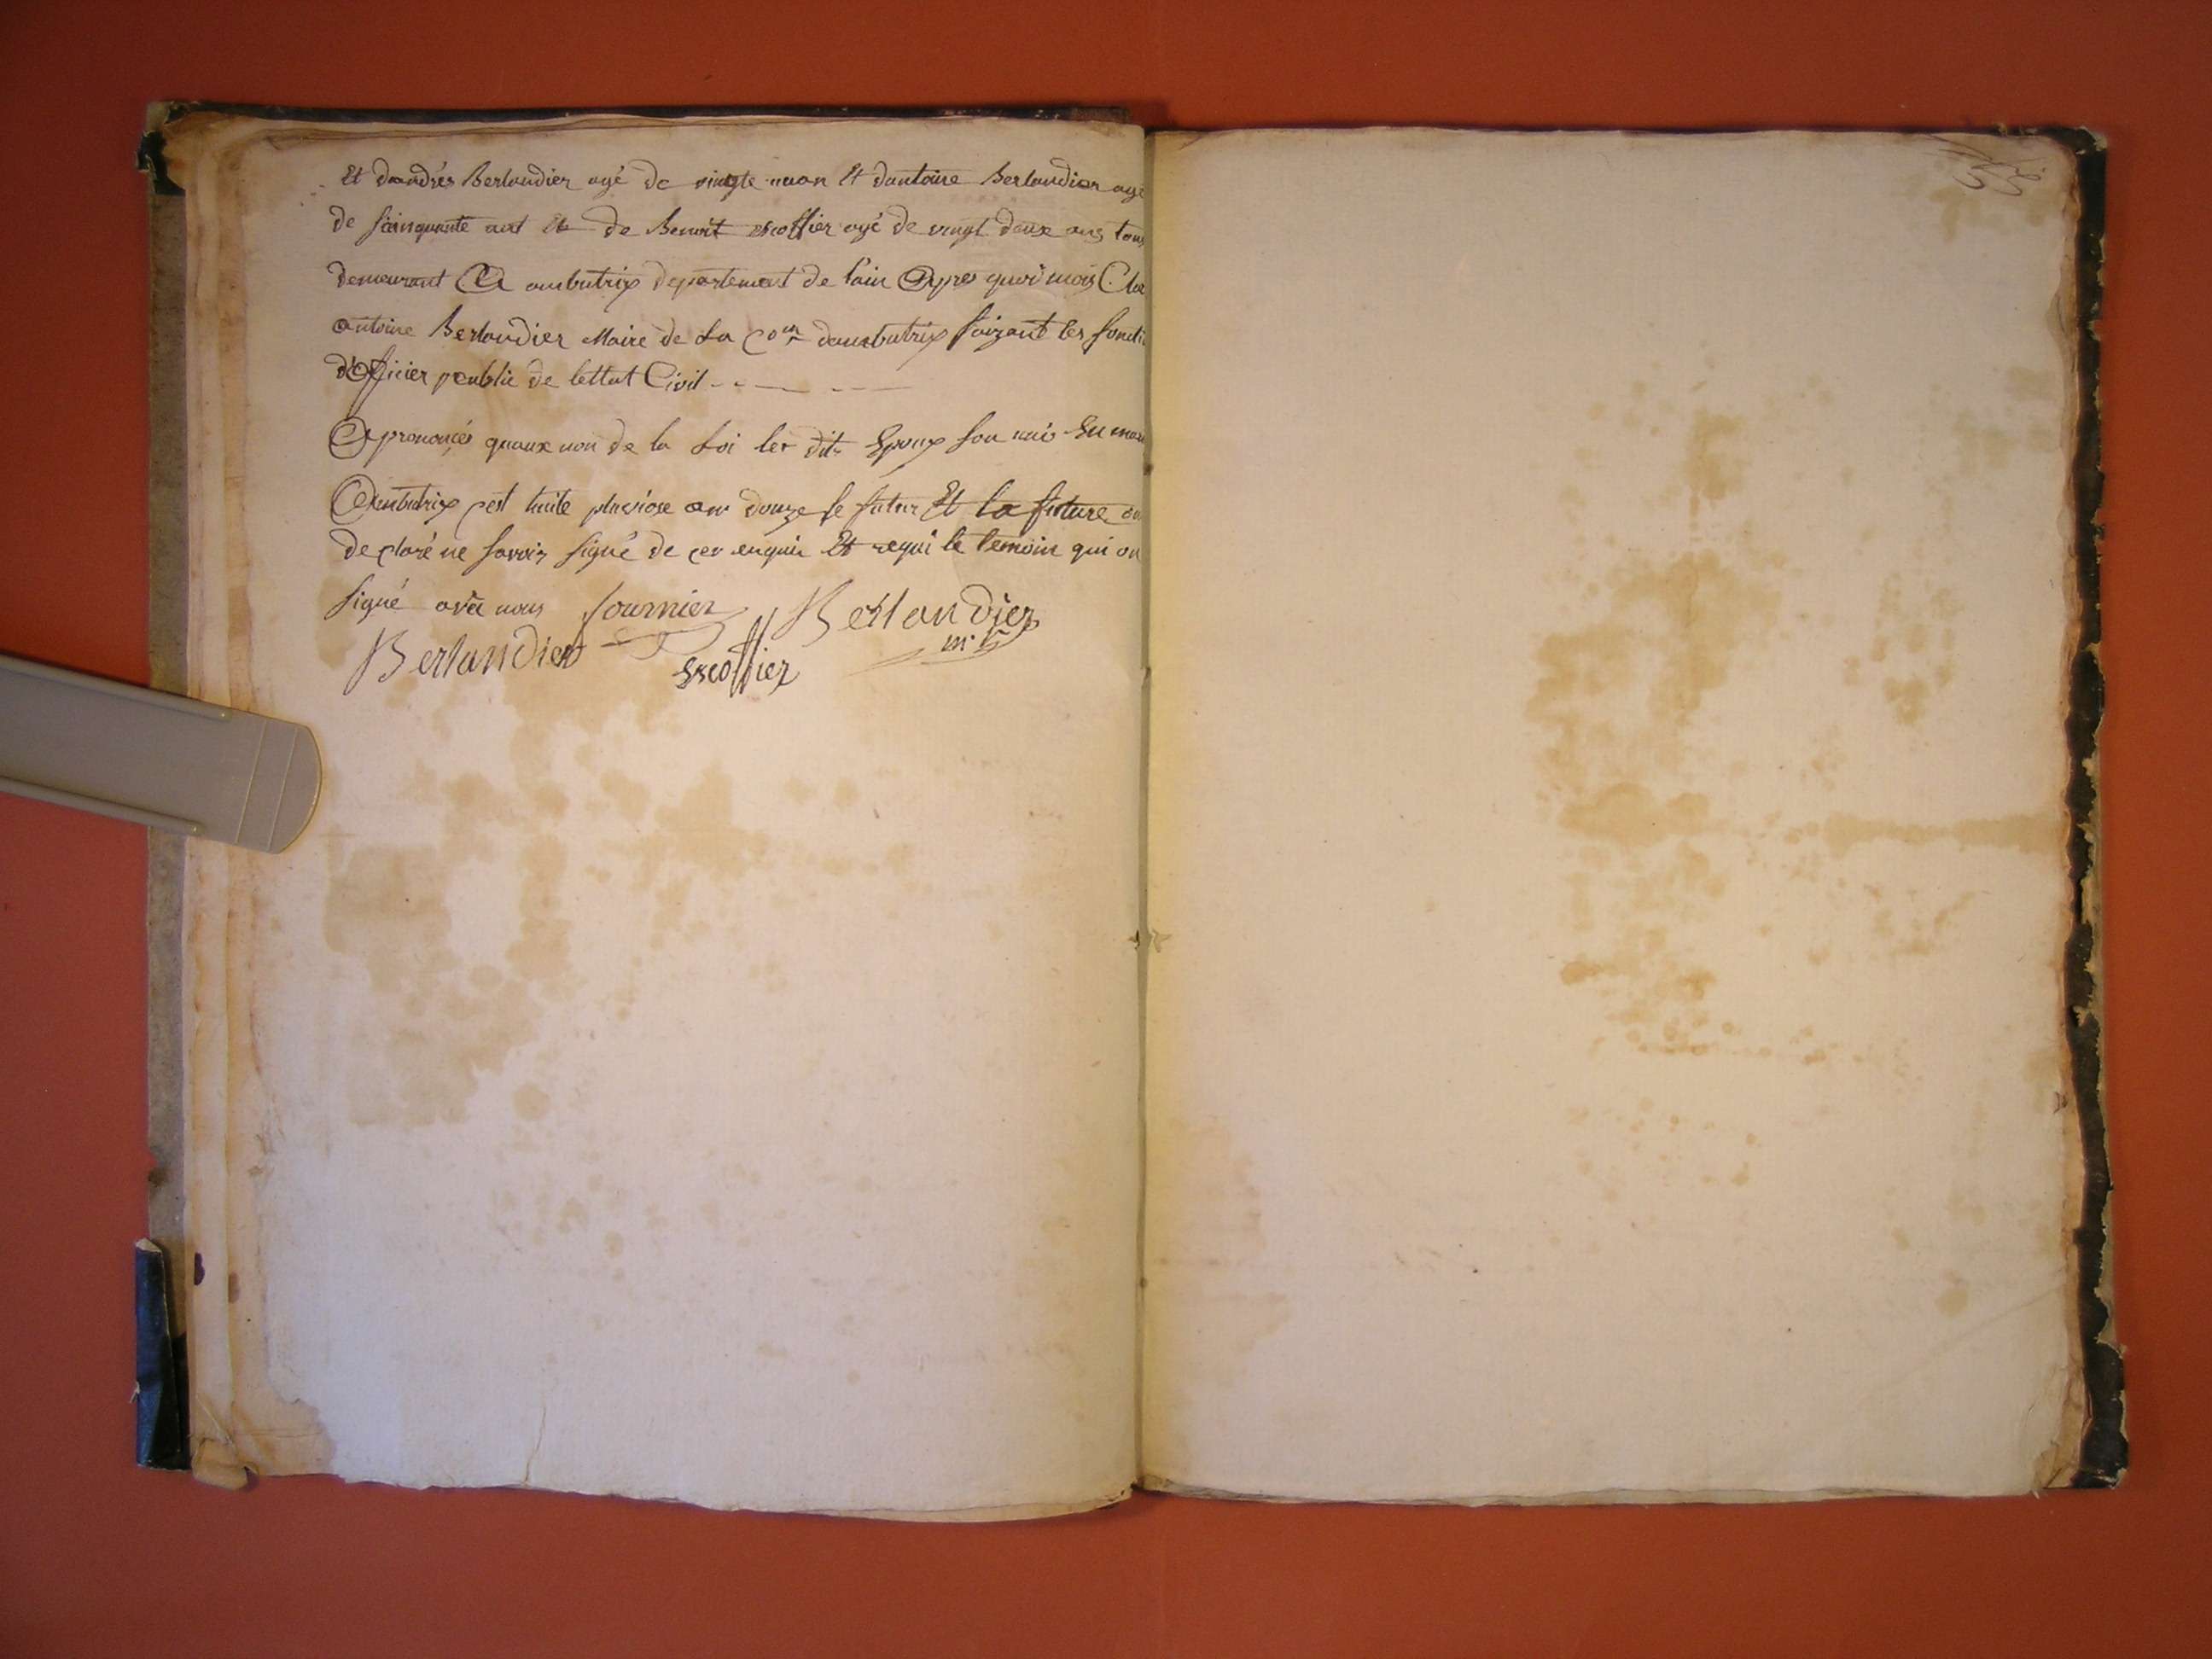 Et dandrés Berlandier agé de vingte nuon Et dantoine Berlandier agé
de sainquante ant Et de Benoit escoffier agé de vingt deux ans tous
demeurant A ambutrix departement de lain Apres quoi mois
antoine Berlandier Maire de La Com dambutrix faizant les foncti
d'Officier peublic de lettat Civil
A prononcés quaux non de la Loi les dits Epoux son unis En mar
A ambutrix cest huite pluviose an douze le futur Et la future on
declaré ne savoir signé de ce enquis Et requi le temoin qui on
signé avec nous fournier Berlandier
Berlandier Escoffier